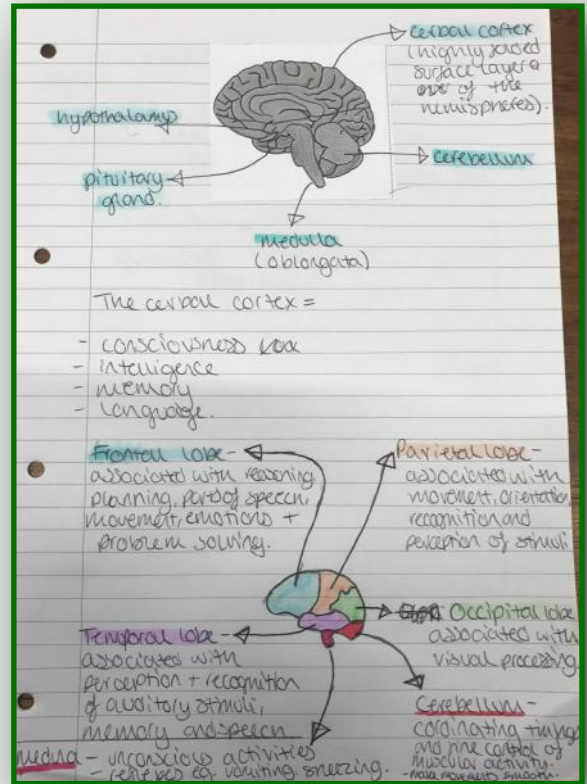 cerbal cortex
(highly folded
surface layer
over of the
hemispheres).
hypothalamus
cerebellum
pituitary
gland.
medulla
(oblongata)
The cerbal cortex =
- consciousness
- intelligence
- memory
- language.
Frontal lobe -
associated with reasoning
planning, parts of speech,
movement, emotions +
problem solving.
Parietal lobe -
associated with
movement, orientation,
recognition and
perception of stimuli
Occipital lobe
associated with
visual processing
Temporal lobe -
associated with
perception + recognition
of auditory stimuli,
memory and speech
Cerebellum -
cordinating timings
and fine control of
muscular activity.
- movements smooth.
medulla - unconscious activities
- reflexes eg. vomiting sneezing.